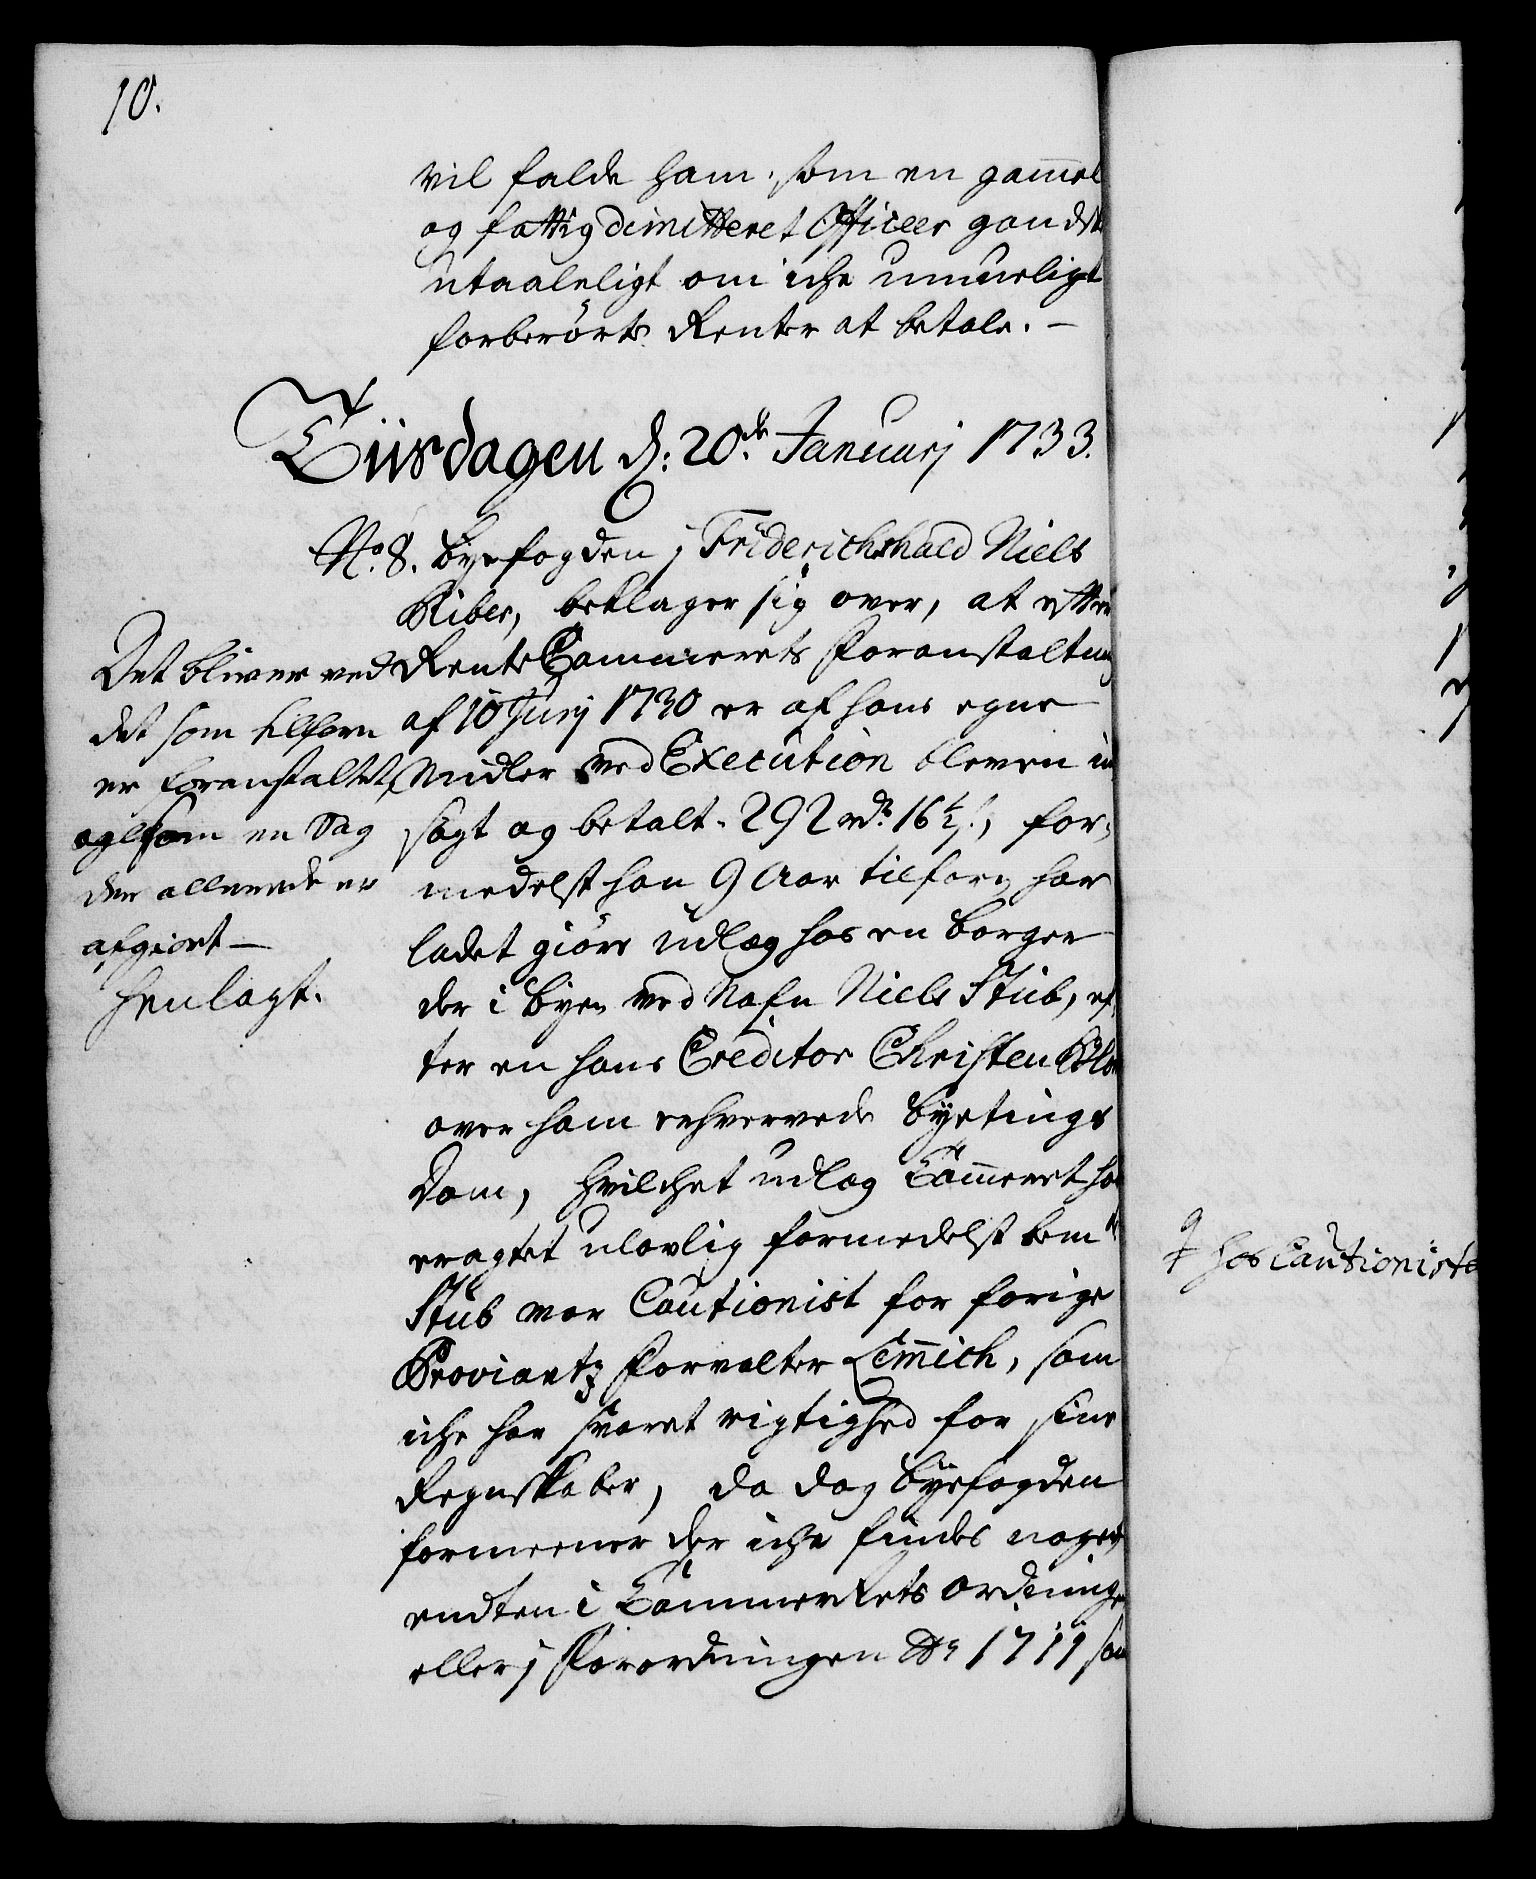 10.
vil falde ham som en gam̄el
og fattig dimitteret Officer gandske
utaaleligt om iche umueligt
forberørte Renter at betale. –
Tiisdagen d: 20de Januarj 1733.
No. 8. Byefogden j Friderichshald Niels
Riber, beklager sig over, at efter
RenteCammerets Foranstaltning
af 10 Junj 1730 er af hans egne
Midler ved Execution bleven ind
søgt og betalt 292 rdr. 16½ s., for-
medelst han 9 Aar tilforn har
ladet giøre udlæg hos en borger
der i byen ved Nafn Niels Stub, ef
ter en hans Creditor Christen
over ham erhvervede byetings
Dom, hvilchet udlæg Cam̄eret har
eragtet ulovlig formedelst bemte
Stub var Cautionist for forige
Proviantz Forvalter Lem̄ich, som
iche har svaret rigtighed for sine
Regnskaber, da dog byefogden
formeener der iche findes noget
endten i CammerRets Ordning
eller j Forordningen Ao 1711 som
Det bliver ved
det som tilforn
er foranstaltet,
og som en Sag
der allerede er
afgiort –
henlagt.
hos Cautionist